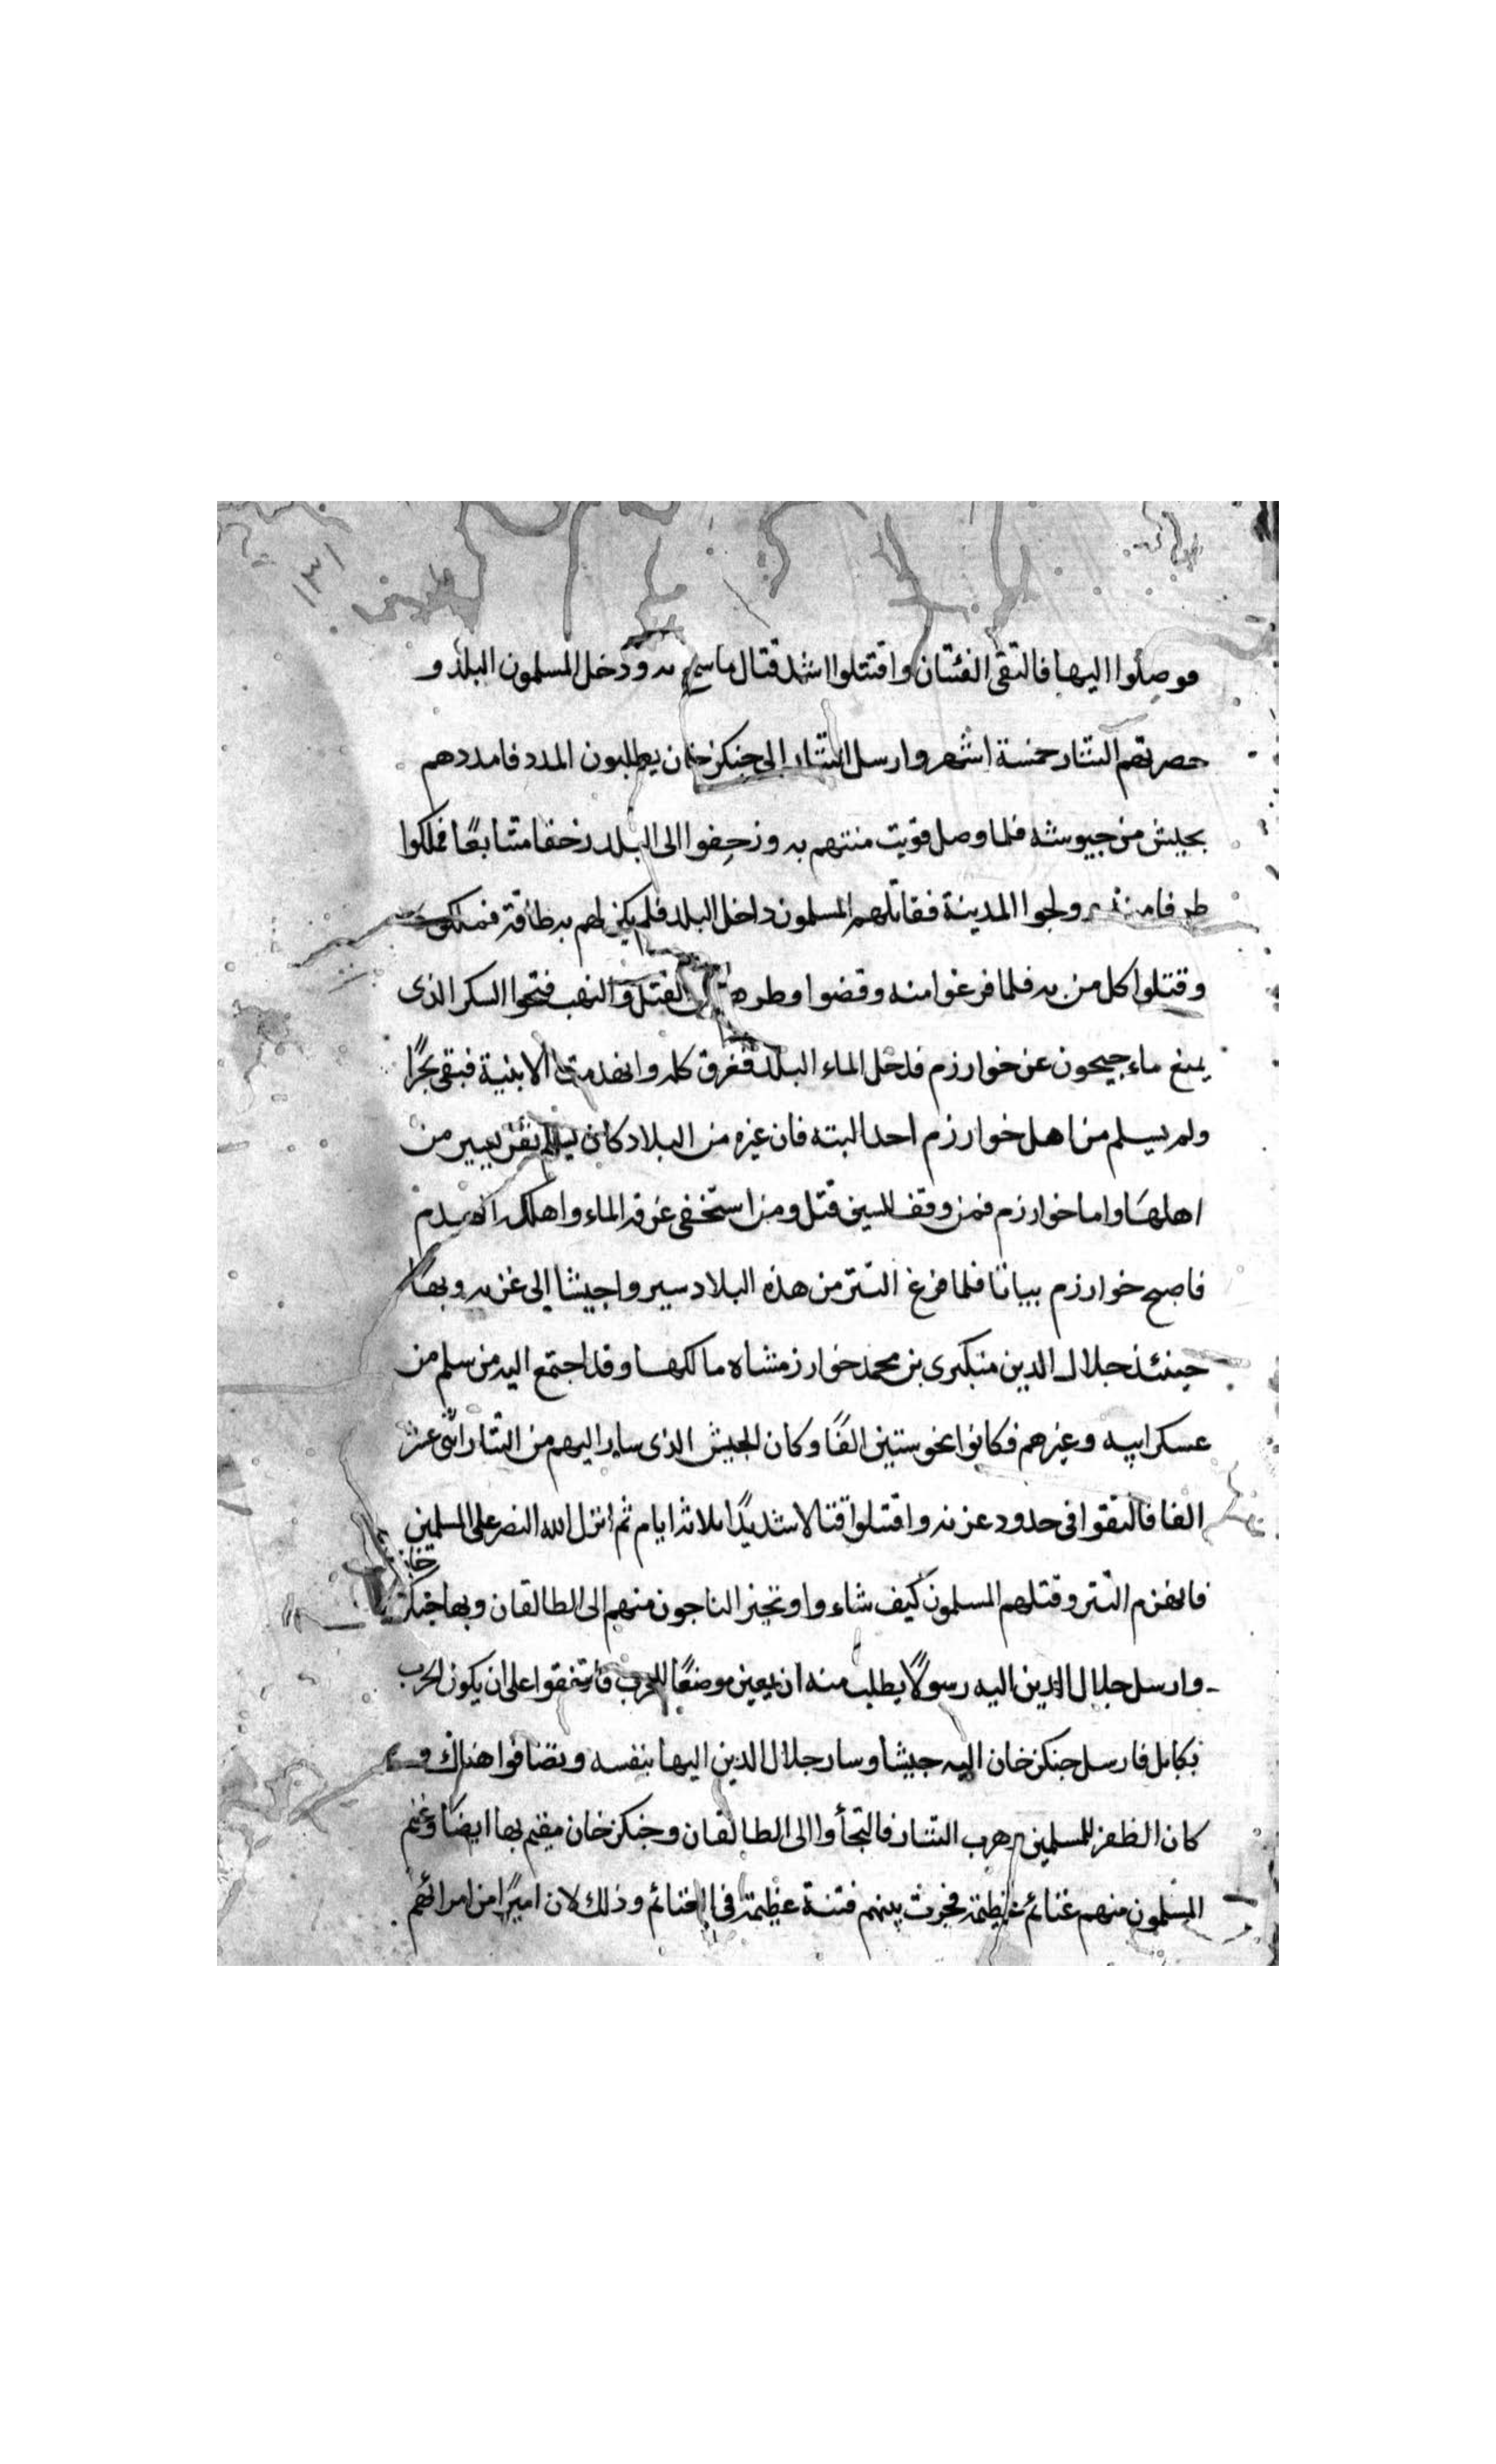 ١٣١
فوصلوا اليها فالتقى الفئتان واقتتلوا اشد قتال ما سمع به ودخل المسلمون البلد و
حصرتهم التتار خمسة اشهر وارسل التتار الى جنكزخان يطلبون المدد فامددهم
بجيش من جيوشه فلما وصل قويت منتهم به وزحفوا الى البلد زحفا متتابعًا فملكوا
طرفا منه ولجوا المدينة فقاتلهم المسلمون داخل البلد فلم يكن لهم به طاقة فملكوه
وقتلوا كل من به فلما فرغوا منه وقضوا وطرهم القتل والنهب فتحوا السكر الذى
يمنع ماء جيحون عن خوارزم فدخل الماء البلد فغرق كله وانهدمت الابنية فبقى بحرًا
ولم يسلم من اهل خوارزم احد البته فان غيره من البلاد كان يسلم نفر يسير من
اهلها واما خوارزم فمن وقف للسيف قتل ومن استخفى غرقه الماء واهلكه الهدم
فاصبح خوارزم بياتا فلما فرغ التتر من هذه البلاد سيروا جيشا الى غزنه وبها
حينئذ جلال الدين منبكبرى بن محمد خوارزمشاه مالكها وقد اجتمع اليه من سلم من
عسكر ابيه وغيرهم فكانوا نحو ستين الفًا وكان الجيش الذى سار اليهم من التتار اثنى عشر
الفا فالتقوا فى حدود غزنه واقتتلوا قتالا شديدًا ثلاثة ايام ثم انزل الله النصر على المسلمين
فانهزم التتر وقتلهم المسلمون كيف شاءوا وتحيز الناجون منهم الى الطالقان وبها جنكز خان
وارسل جلال الدين اليه رسولًا يطلب منه ان يعين موضعًا للحرب فاتفقوا على ان يكون الحرب
بكابل فارسل جنكزخان اليه جيشا وسار جلال الدين اليها بنفسه وتصافوا هناك و
كان الظفر للمسلمين وهرب التتار فالتجأوا الى الطالقان وجنكزخان مقيم بها ايضًا وغنم
المسلمون منهم غنائم عظيمة فجرت بينهم فتنة عظيمة فى الغنائم وذلك لان اميرًا من امرائهم